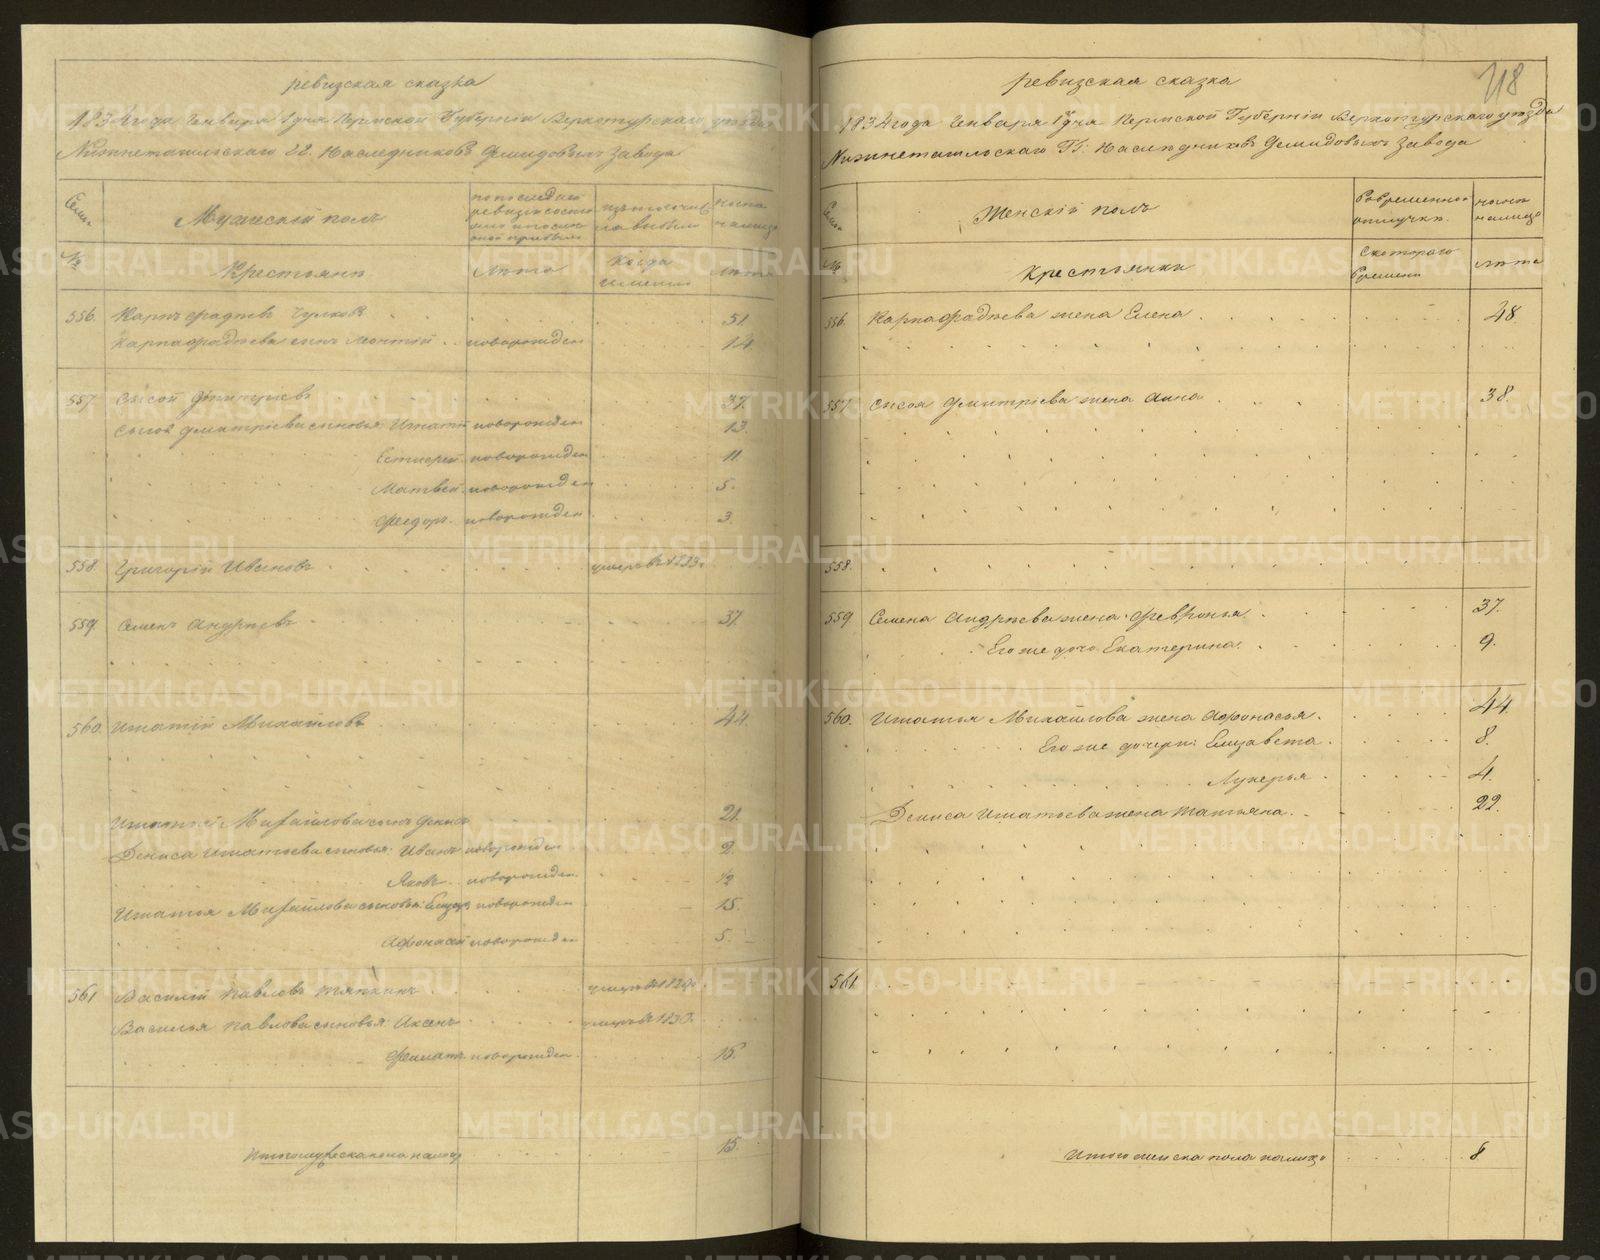 ревизская сказка
1834 года Генваря 1 дня Пермской Губерніи Верхотурскаго уѣзда
Нижнетагильскаго ГГ. Наследниковъ Демидовыхъ Завода
Семьи
Мужескій полъ
по последней ревизіи состояло и после оной прибыло
изъ того числа выбыло
ныне на лицо
№
Крестьянъ
Лѣта
Когда именно
Лѣта
556. Карпъ Фадѣевъ Чулковъ 51.
Карпа Фадѣева сынъ Леонтій новорожден 14.
557. Сысой Дмитріевъ 37.
Сысоя Дмитріева сыновья: Игнатій новорожден 13.
Естифей новорожден 11.
Матвей новорожден 5.
Федоръ новорожден 3.
558. Григорій Ивановъ умеръ въ
559. Семенъ Андрѣевъ 37.
560. Игнатій Михайловъ 44.
Игнатія Михайлова сынъ Денисъ 21.
Дениса Игнатьева сыновья: Иванъ новорожден 2.
Яковъ новорожден 1/2
Игнатья Михайлова сыновья: Елизаръ новорожден 15.
Афонасей новорожден 5.
561. Василій Павловъ Тяпкинъ умеръ въ 1829.
Василья Павлова сыновья: Аксенъ умеръ въ
Филатъ новорожден 15.
Итого мужеска пола на лицо 15.
718
ревизская сказка
1834 года Генваря 1 дня Пермской Губерніи Верхотурскаго уѣзда
Нижнетагильскаго ГГ. Наследниковъ Демидовыхъ Завода
Семьи
Женскій полъ
Во временной отлучкѣ.
ныне на лицо
№
Крестьянки
Съ котораго времени
лѣта
556. Карпа Фадѣева жена Елена 48.
557. Сысоя Дмитріева жена Анна 38.
558.
559. Семена Андрѣева жена Февронья 37.
Его же дочь Екатерина. 9.
560. Игнатья Михайлова жена Афонасья. 44.
Его же дочери: Елизавета. 8.
Лукерья 4.
Дениса Игнатьева жена Татьяна. 22.
561.
Итого женска пола на лицо 8
METRIKI.GASO-URAL.RU